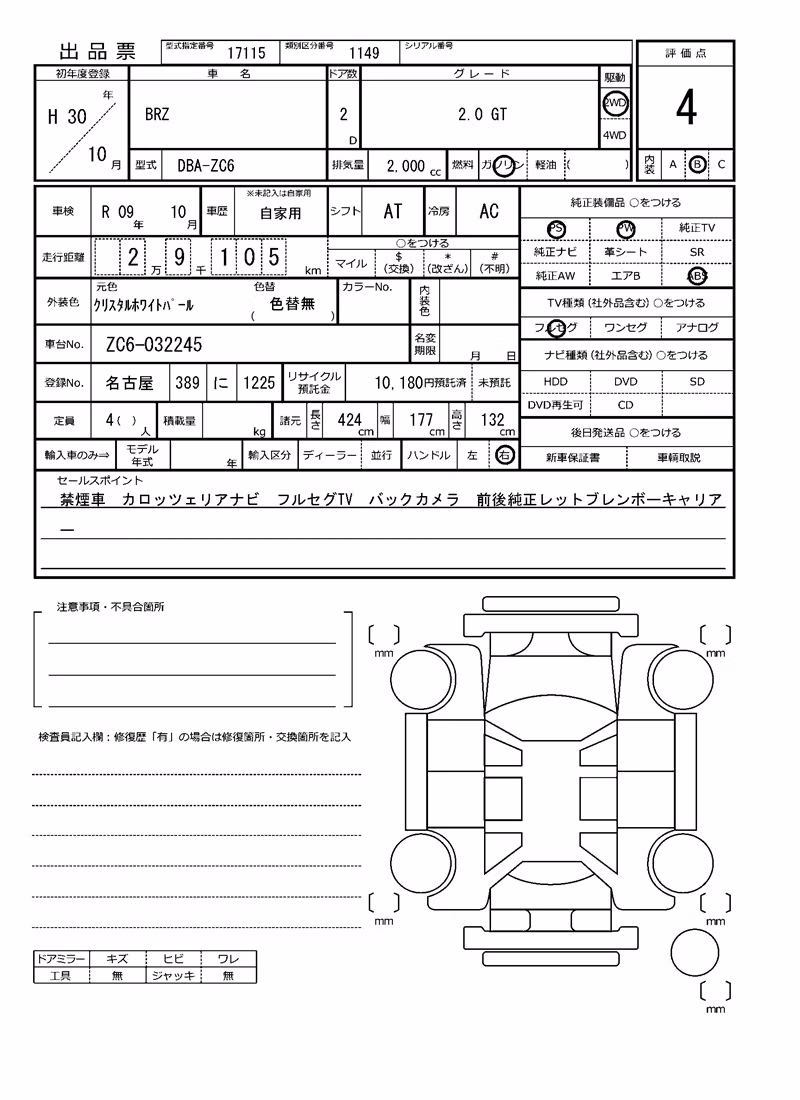 出品票 型式指定番号 17115 類別区分番号 1149 シリアル番号
評価点
初年度登録 車 名 ドア数 グレード 駆動
H 30 年 10 月 BRZ 2 D 2.0 GT 2WD 4WD
4
型式 DBA-ZC6 排気量 2,000 cc 燃料 ガソリン 軽油 ( ) 内装 A B C
車検 R 09 年 10 月 車歴 ※未記入は自家用 自家用 シフト AT 冷房 AC
純正装備品 ○をつける
PS PW 純正TV
純正ナビ 革シート SR
純正AW エアB ABS
走行距離 2 万 9 千 1 0 5 km
○をつける
マイル $(交換) *(改ざん) #(不明)
TV種類(社外品含む) ○をつける
フルセグ ワンセグ アナログ
外装色 元色 クリスタルホワイトパール 色替 ( 色替無 ) カラーNo. 内装色
車台No. ZC6-032245 名変期限 月 日
ナビ種類(社外品含む) ○をつける
HDD DVD SD
DVD再生可 CD
登録No. 名古屋 389 に 1225 リサイクル預託金 10,180円預託済 未預託
定員 4( ) 人 積載量 kg 諸元 長さ 424 cm 幅 177 cm 高さ 132 cm
後日発送品 ○をつける
新車保証書 車輌取説
輸入車のみ⇒ モデル年式 年 輸入区分 ディーラー 並行 ハンドル 左 右
セールスポイント
禁煙車 カロッツェリアナビ フルセグTV バックカメラ 前後純正レットブレンボーキャリア
ー
注意事項・不具合箇所
検査員記入欄:修復歴「有」の場合は修復箇所・交換箇所を記入
ドアミラー キズ ヒビ ワレ
工具 無 ジャッキ 無
mm
mm
mm
mm
mm